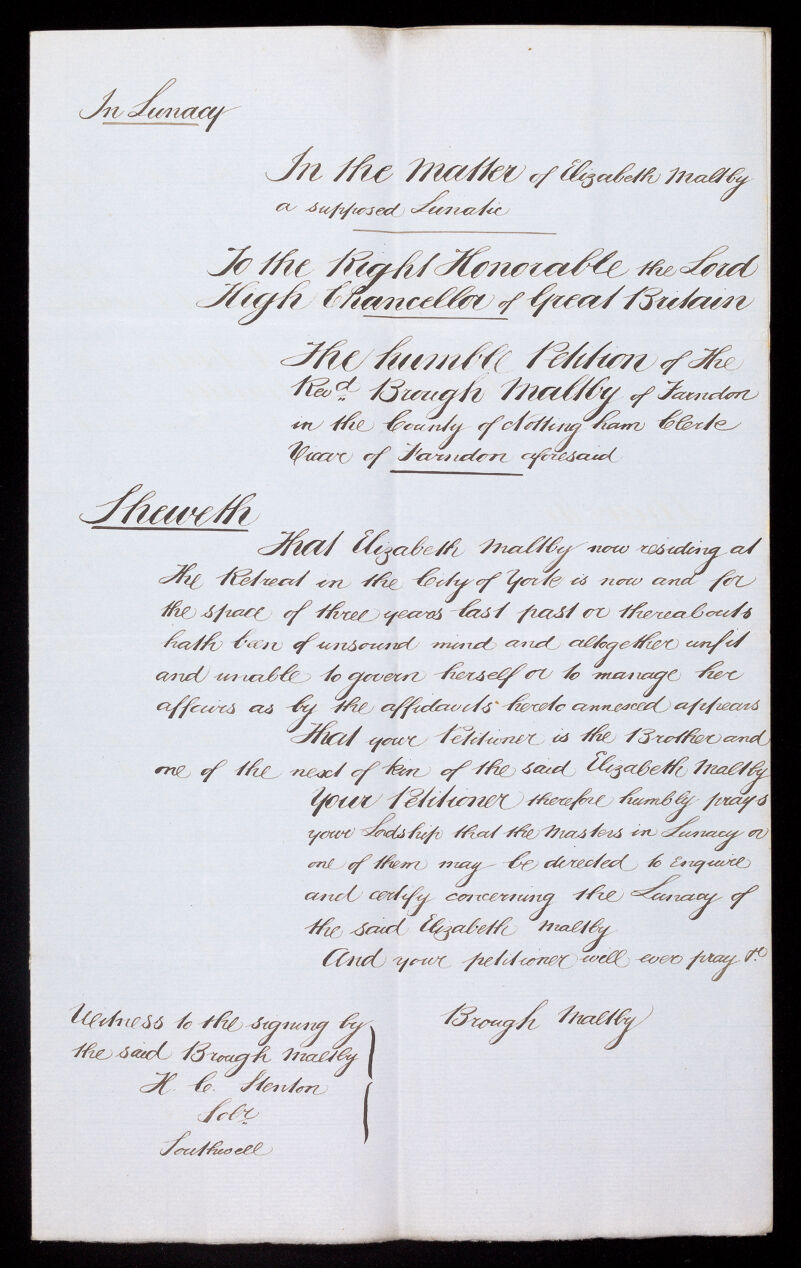 In Lunacy
In the Matter of Elizabeth Maltby
a supposed Lunatic
To the Right Honorable the Lord
High Chancellor of Great Britain
The humble Petition of The
Revd. Brough Maltby of Farndon
in the County of Nottingham Clerk
Vicar of Farndon aforesaid
Sheweth
That Elizabeth Maltby now residing at
The Retreat in the City of York is now and for
the space of three years last past or thereabouts
hath been of unsound mind and altogether unfit
and unable to govern herself or to manage her
affairs as by the affidavits hereto annexed appears
That your Petitioner is the Brother and
one of the next of kin of the said Elizabeth Maltby
Your Petitioner therefore humbly prays
your Lodship that the Masters in Lunacy or
one of them may be directed to Enquire
and certify concerning the Lunacy of
the said Elizabeth Maltby
And your petitioner will ever pray &c
Witness to the signing by
the said Brough Maltby
H. C. Stenton
Solr.
Southwell
Brough Maltby